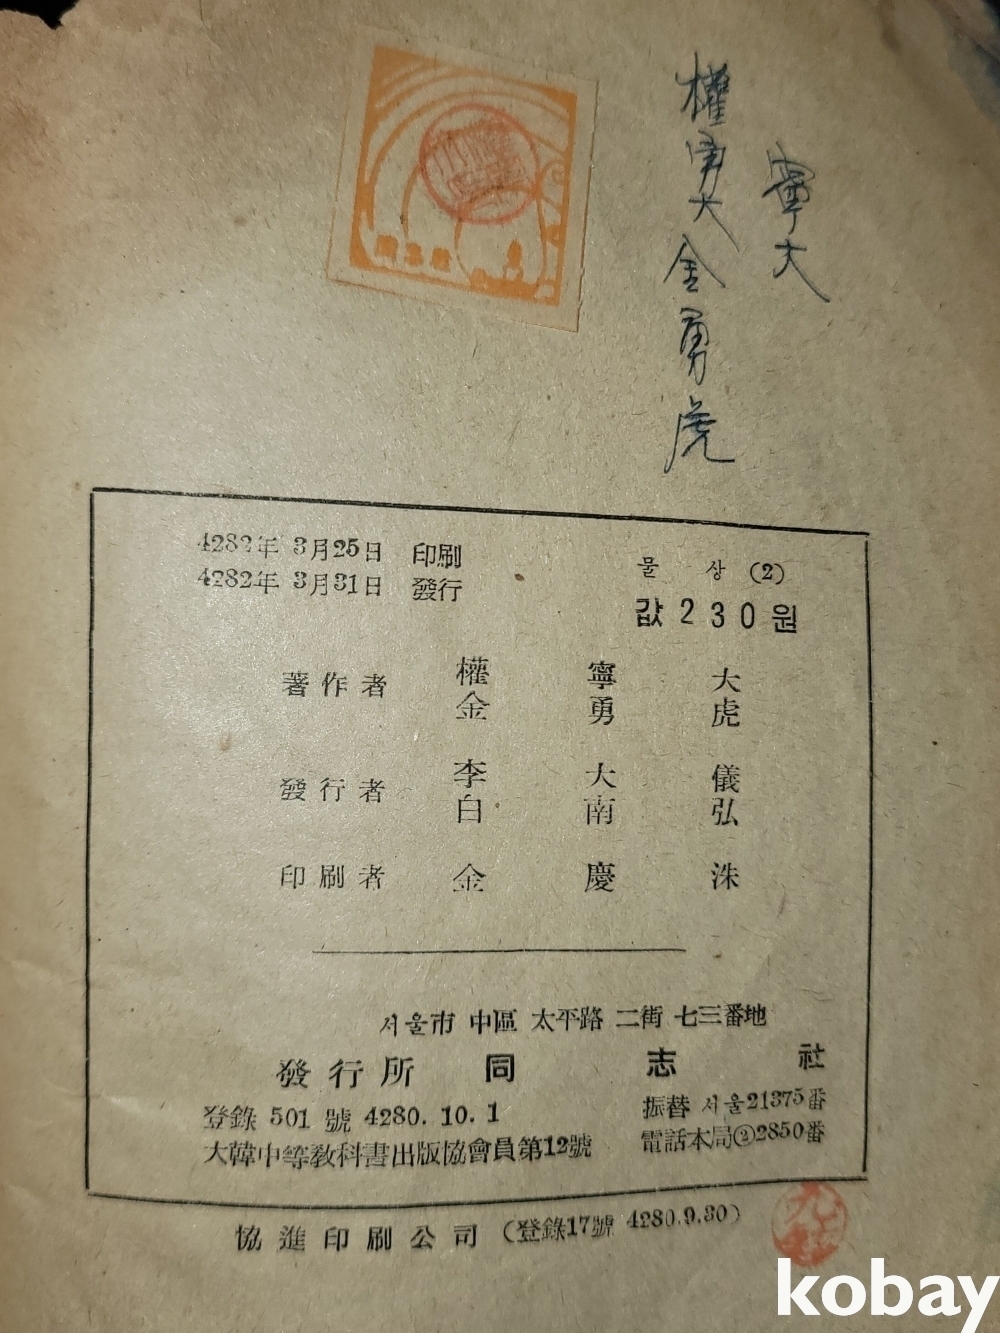 權寧大金勇虎
寧大
4282年 3月25日 印刷
4282年 3月31日 發行
물 상 (2)
값 230원
著作者 權寧大
金勇虎
發行者 李大儀
白南弘
印刷者 金慶洙
서울市 中區 太平路 二街 七三番地
發行所 同志社
登錄 501 號 4280. 10. 1
振替 서울21375番
大韓中等敎科書出版協會員第12號
電話本局②2850番
協進印刷公司 (登錄17號 4280.9.30)
kobay